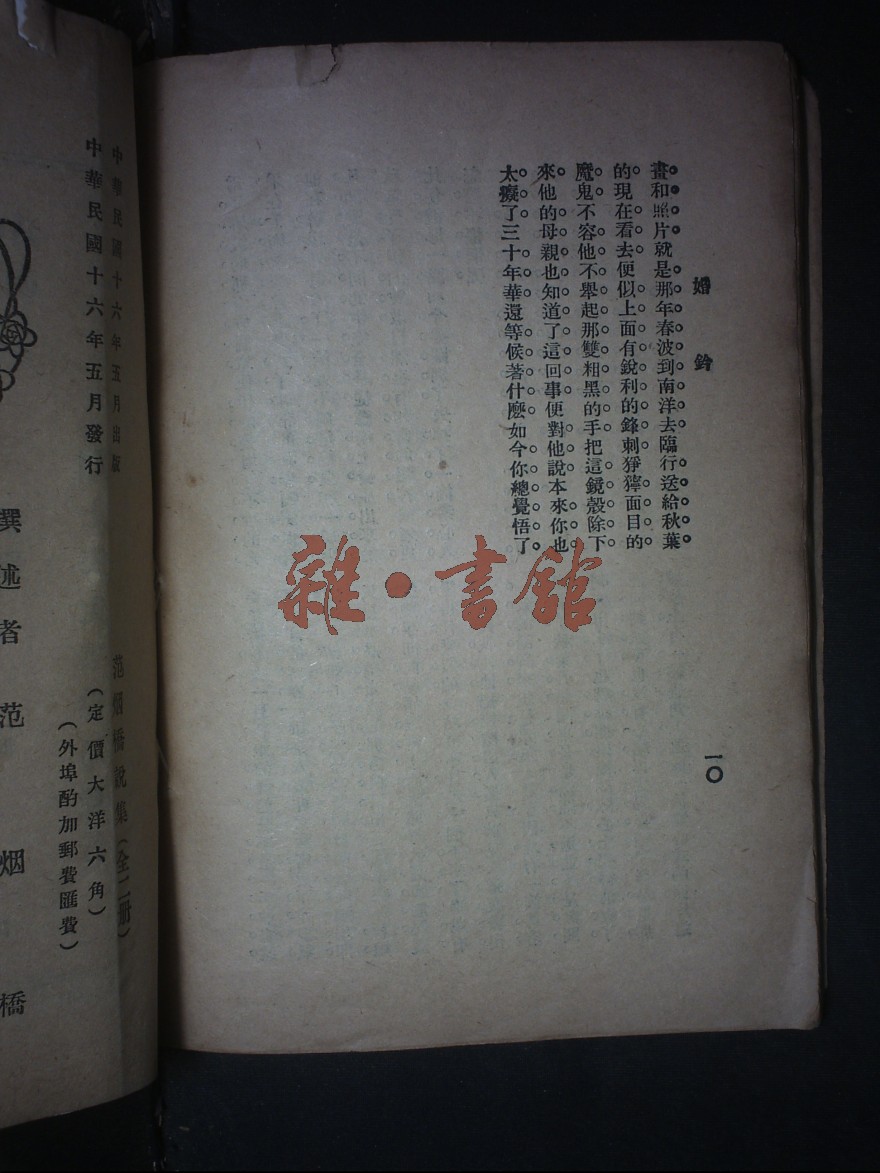 婚鈴
畫和照片就是那年春波到南洋去臨行送給秋葉
的現在看去便似上面有銳利的鋒刺猙獰面目的
魔鬼不容他不舉起那雙粗黑的手把這鏡殼除下
來他的母親也知道了這回事便對他說本來你也
太癡了三十年華還等候著什麼如今你總覺悟了
一〇
雜·書館
中華民國十六年五月出版
中華民國十六年五月發行
范烟橋說集（全二册）
（定價大洋六角）
（外埠酌加郵費匯費）
撰述者范烟橋